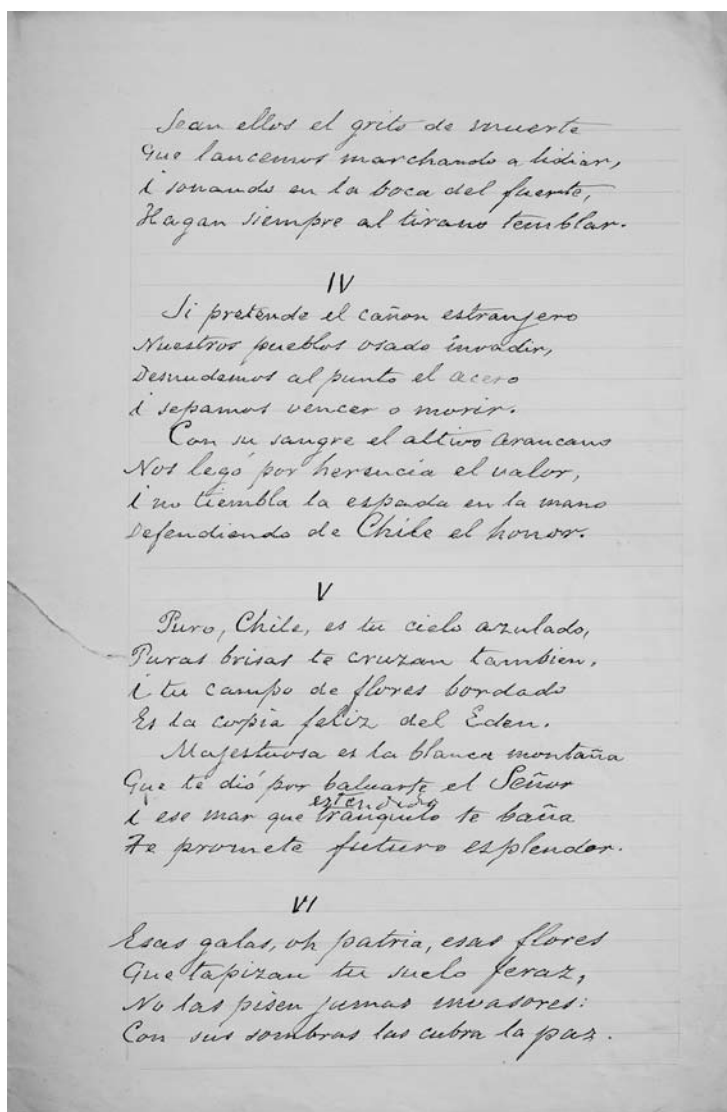 Sean ellos el grito de muerte
Que lancemos marchando a lidiar,
i sonando en la boca del fuerte,
Hagan siempre al tirano temblar.
IV
Si pretende el cañon estranjero
Nuestros pueblos osado invadir,
Desnudemos al punto el acero
i sepamos vencer o morir.
Con su sangre el altivo Araucano
Nos legó por herencia el valor,
i no tiembla la espada en la mano
Defendiendo de Chile el honor.
V
Puro, Chile, es tu cielo azulado,
Puras brisas te cruzan tambien,
i tu campo de flores bordado
Es la copia feliz del Eden.
Majestuosa es la blanca montaña
Que te dió por baluarte el Señor
estendido
i ese mar que tranquilo te baña
Te promete futuro esplendor.
VI
Esas galas, oh patria, esas flores
Que tapizan tu suelo feraz,
No las pisen jamas invasores:
Con sus sombras las cubra la paz.